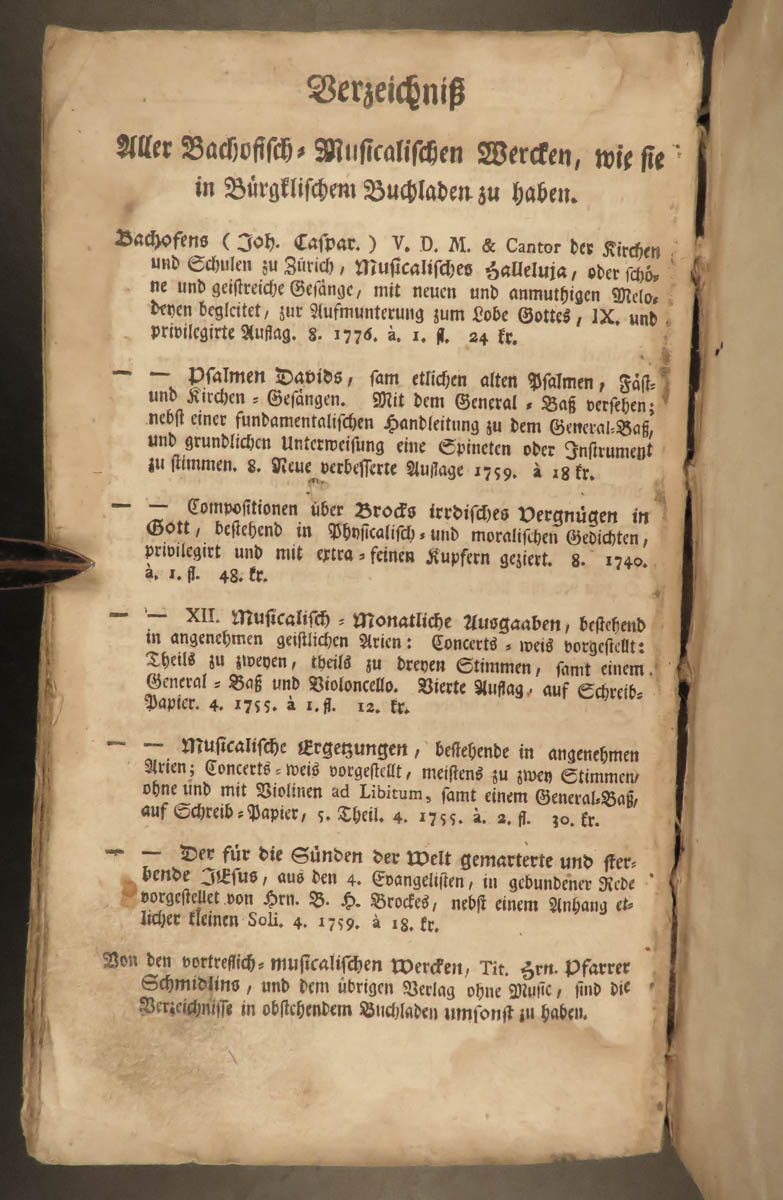 Verzeichniß
Aller Bachofisch-Musicalischen Wercken, wie sie
in Bürgklischem Buchladen zu haben.
Bachofens (Joh. Caspar.) V. D. M. & Cantor der Kirchen
und Schulen zu Zürich, Musicalisches Halleluja, oder schö-
ne und geistreiche Gesänge, mit neuen und anmuthigen Melo-
deyen begleitet, zur Aufmunterung zum Lobe Gottes, IX. und
privilegirte Auflag. 8. 1776. à. 1. fl. 24 kr.
— — Psalmen Davids, sam etlichen alten Psalmen, Fäst-
und Kirchen-Gesängen. Mit dem General-Baß versehen;
nebst einer fundamentalischen Handleitung zu dem General-Baß,
und grundlichen Unterweisung eine Spineten oder Instrument
zu stimmen. 8. Neue verbesserte Auflage 1759. à 18 kr.
— — Compositionen über Brocks irrdisches Vergnügen in
Gott, bestehend in Physicalisch-und moralischen Gedichten,
privilegirt und mit extra-feinen Kupfern geziert. 8. 1740.
à. 1. fl. 48. kr.
— — XII. Musicalisch-Monatliche Ausgaaben, bestehend
in angenehmen geistlichen Arien: Concerts-weis vorgestellt:
Theils zu zweyen, theils zu dreyen Stimmen, samt einem
General-Baß und Violoncello. Vierte Auflag, auf Schreib-
Papier. 4. 1755. à 1. fl. 12. kr.
— — Musicalische Ergetzungen, bestehende in angenehmen
Arien; Concerts-weis vorgestellt, meistens zu zwey Stimmen/
ohne und mit Violinen ad Libitum, samt einem General-Baß,
auf Schreib-Papier, 5. Theil. 4. 1755. à. 2. fl. 30. kr.
— — Der für die Sünden der Welt gemarterte und ster-
bende JEsus, aus den 4. Evangelisten, in gebundener Rede
vorgestellet von Hrn. B. H. Brockes, nebst einem Anhang et-
licher kleinen Soli. 4. 1759. à 18. kr.
Von den vortreflich-musicalischen Wercken, Tit. Hrn. Pfarrer
Schmidlins, und dem übrigen Verlag ohne Music, sind die
Verzeichnisse in obstehendem Buchladen umsonst zu haben.